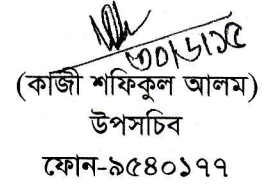 ৩০।৬।১৫
(কাজী শফিকুল আলম)
উপসচিব
ফোন-৯৫৪০১৭৭